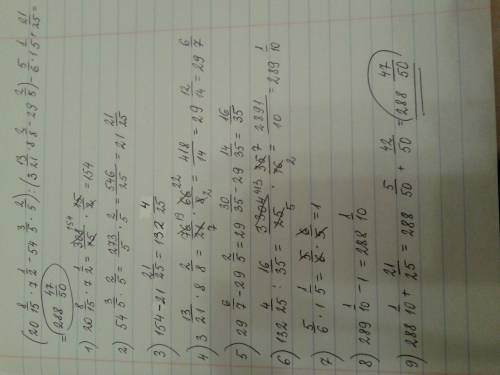 (20 8/15 · 7 1/2 - 54 3/5 · 2/5) : (3 13/21 · 8 2/8 - 29 2/5) - 5/6 · 1 1/5 + 21/25 =
= 288 47/50
1) 20 8/15 · 7 1/2 = 308/15 · 15/2 = 154
2) 54 3/5 · 2/5 = 273/5 · 2/5 = 546/25 = 21 21/25
3) 154 - 21 21/25 = 132 4/25
4) 3 13/21 · 8 2/8 = 76/21 · 66/8 = 418/14 = 29 12/14 = 29 6/7
5) 29 6/7 - 29 2/5 = 29 30/35 - 29 14/35 = 16/35
6) 132 4/25 : 16/35 = 3304/25 · 35/16 = 2891/10 = 289 1/10
7) 5/6 · 1 1/5 = 5/6 · 6/5 = 1
8) 289 1/10 - 1 = 288 1/10
9) 288 1/10 + 21/25 = 288 5/50 + 42/50 = 288 47/50